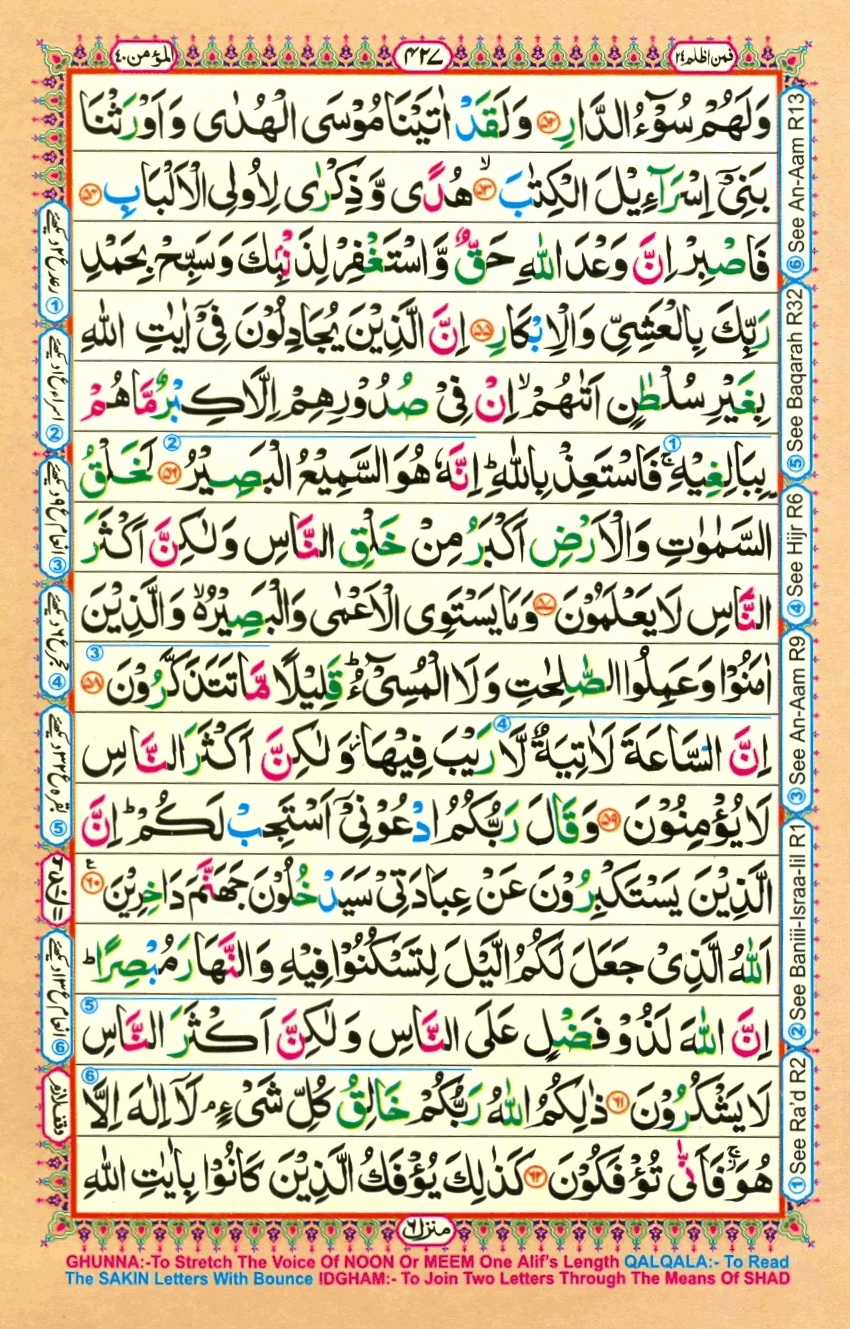 فمن اظلم ۲۴
۴۲۷
المؤمن ۴۰
وَلَهُمْ سُوْٓءُ الدَّارِ ﴿۵۲﴾ وَلَقَدْ اٰتَيْنَا مُوْسَى الْهُدٰى وَاَوْرَثْنَا
بَنِيْٓ اِسْرَآءِيْلَ الْكِتٰبَ ۙ﴿۵۳﴾ هُدًى وَّذِكْرٰى لِاُولِى الْاَلْبَابِ ﴿۵۴﴾
فَاصْبِرْ اِنَّ وَعْدَ اللّٰهِ حَقٌّ وَّاسْتَغْفِرْ لِذَنْۢبِكَ وَسَبِّحْ بِحَمْدِ
رَبِّكَ بِالْعَشِيِّ وَالْاِبْكَارِ ﴿۵۵﴾ اِنَّ الَّذِيْنَ يُجَادِلُوْنَ فِيْٓ اٰيٰتِ اللّٰهِ
بِغَيْرِ سُلْطٰنٍ اَتٰىهُمْ ۙ اِنْ فِيْ صُدُوْرِهِمْ اِلَّا كِبْرٌ مَّا هُمْ
بِبَالِغِيْهِ ۚ فَاسْتَعِذْ بِاللّٰهِ ؕ اِنَّهٗ هُوَ السَّمِيْعُ الْبَصِيْرُ ﴿۵۶﴾ لَخَلْقُ
السَّمٰوٰتِ وَالْاَرْضِ اَكْبَرُ مِنْ خَلْقِ النَّاسِ وَلٰكِنَّ اَكْثَرَ
النَّاسِ لَا يَعْلَمُوْنَ ﴿۵۷﴾ وَمَا يَسْتَوِى الْاَعْمٰى وَالْبَصِيْرُ ۙ۬ وَالَّذِيْنَ
اٰمَنُوْا وَعَمِلُوا الصّٰلِحٰتِ وَلَا الْمُسِيْٓءُ ؕ قَلِيْلًا مَّا تَتَذَكَّرُوْنَ ﴿۵۸﴾
اِنَّ السَّاعَةَ لَاٰتِيَةٌ لَّا رَيْبَ فِيْهَا ؗ وَلٰكِنَّ اَكْثَرَ النَّاسِ
لَا يُؤْمِنُوْنَ ﴿۵۹﴾ وَقَالَ رَبُّكُمُ ادْعُوْنِيْٓ اَسْتَجِبْ لَكُمْ ؕ اِنَّ
الَّذِيْنَ يَسْتَكْبِرُوْنَ عَنْ عِبَادَتِيْ سَيَدْخُلُوْنَ جَهَنَّمَ دَاخِرِيْنَ ﴿۶۰﴾
اَللّٰهُ الَّذِيْ جَعَلَ لَكُمُ الَّيْلَ لِتَسْكُنُوْا فِيْهِ وَالنَّهَارَ مُبْصِرًا ؕ
اِنَّ اللّٰهَ لَذُوْ فَضْلٍ عَلَى النَّاسِ وَلٰكِنَّ اَكْثَرَ النَّاسِ
لَا يَشْكُرُوْنَ ﴿۶۱﴾ ذٰلِكُمُ اللّٰهُ رَبُّكُمْ خَالِقُ كُلِّ شَيْءٍ ۘ لَآ اِلٰهَ اِلَّا
هُوَ ۚ فَاَنّٰى تُؤْفَكُوْنَ ﴿۶۲﴾ كَذٰلِكَ يُؤْفَكُ الَّذِيْنَ كَانُوْا بِاٰيٰتِ اللّٰهِ
منزل ۶
① See Ra'd R2
② See Baniii-Israa-Iil R1
③ See An-Aam R9
④ See Hijr R6
⑤ See Baqarah R32
⑥ See An-Aam R13
GHUNNA:-To Stretch The Voice Of NOON Or MEEM One Alif's Length QALQALA:- To Read
The SAKIN Letters With Bounce IDGHAM:- To Join Two Letters Through The Means Of SHAD